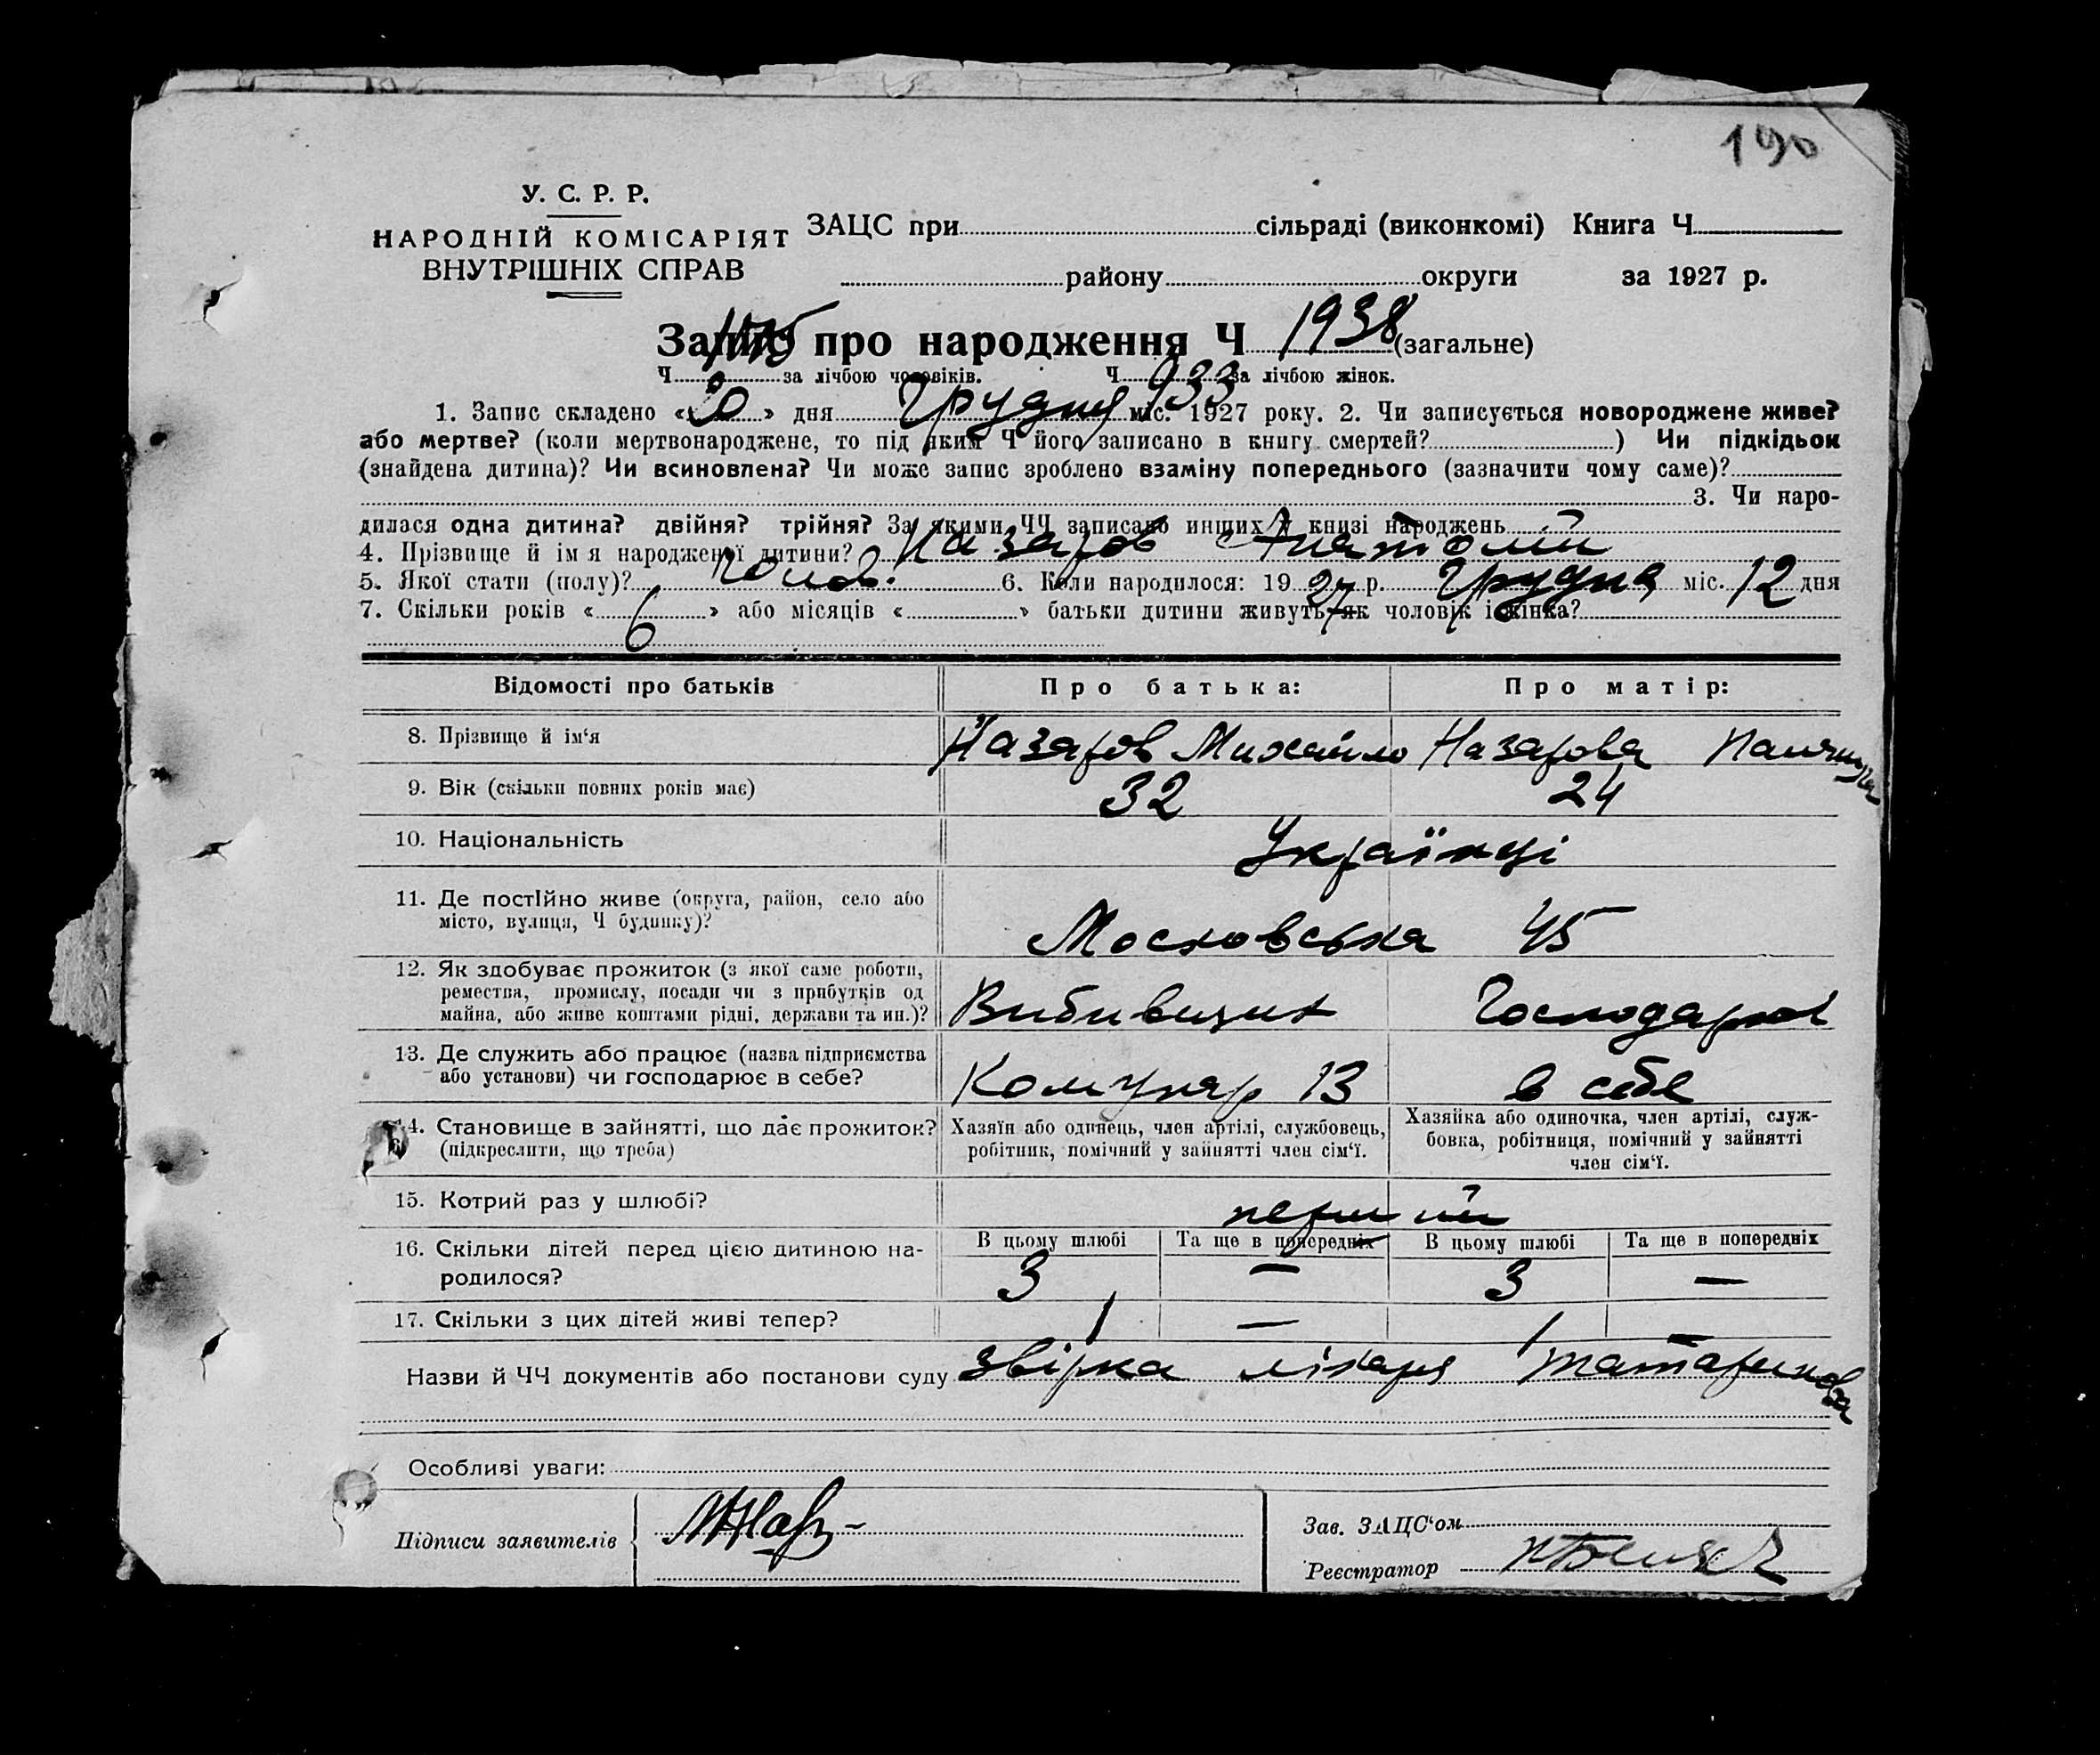 190
У. С. Р. Р.
НАРОДНІЙ КОМІСАРІЯТ
ВНУТРІШНІХ СПРАВ
ЗАЦС при сільраді (виконкомі) Книга Ч
району округи за 1927 р.
Запис про народження Ч 1938 (загальне)
Ч за лічбою чоловіків. Ч 933 за лічбою жінок.
1. Запис складено « 20 » дня Грудня міс. 1927 року. 2. Чи записується новороджене живе?
або мертве? (коли мертвонароджене, то під яким Ч його записано в книгу смертей? ) Чи підкідьок
(знайдена дитина)? Чи всиновлена? Чи може запис зроблено взаміну попереднього (зазначити чому саме)?
3. Чи наро-
дилася одна дитина? двійня? трійня? За якими ЧЧ записано инших у книзі народжень
4. Прізвище й ім я народженої дитини? Назаров Анатолій
5. Якої стати (полу)? чолов. 6. Коли народилося: 19 27 р. Грудня міс. 12 дня
7. Скільки років « 6 » або місяців « » батьки дитини живуть як чоловік і жінка?
Відомості про батьків Про батька: Про матір:
8. Прізвище й ім‘я Назаров Михайло Назарова
9. Вік (скільки повних років має) 32 24
10. Національність Українці
11. Де постІйно живе (округа, район, село або
місто, вулиця, Ч будинку)? Московська 45
12. Як здобуває прожиток (з якої саме роботи,
ремества, промислу, посади чи з прибутків од
майна, або живе коштами рідні, держави та ин.)? Вибивщик Господарює
13. Де служить або працює (назва підприємства
або установи) чи господарює в себе? Комунар 13 в себе
14. Становище в зайнятті, що дає прожиток?
(підкреслити, що треба)
Хазяїн або одинець, член артілі, службовець,
робітник, помічний у зайнятті член сім‘ї.
Хазяйка або одиночка, член артілі, служ-
бовка, робітниця, помічний у зайнятті
член сім‘ї.
15. Котрий раз у шлюбі? перший
16. Скільки дітей перед цією дитиною на-
родилося?
В цьому шлюбі Та ще в попередніх В цьому шлюбі Та ще в попередніх
3 — 3 —
17. Скільки з цих дітей живі тепер? 1 — 1 —
Назви й ЧЧ документів або постанови суду звірка лікаря Татаринова
Особливі уваги:
Підписи заявителів
Зав. ЗАЦС‘ом
Реєстратор